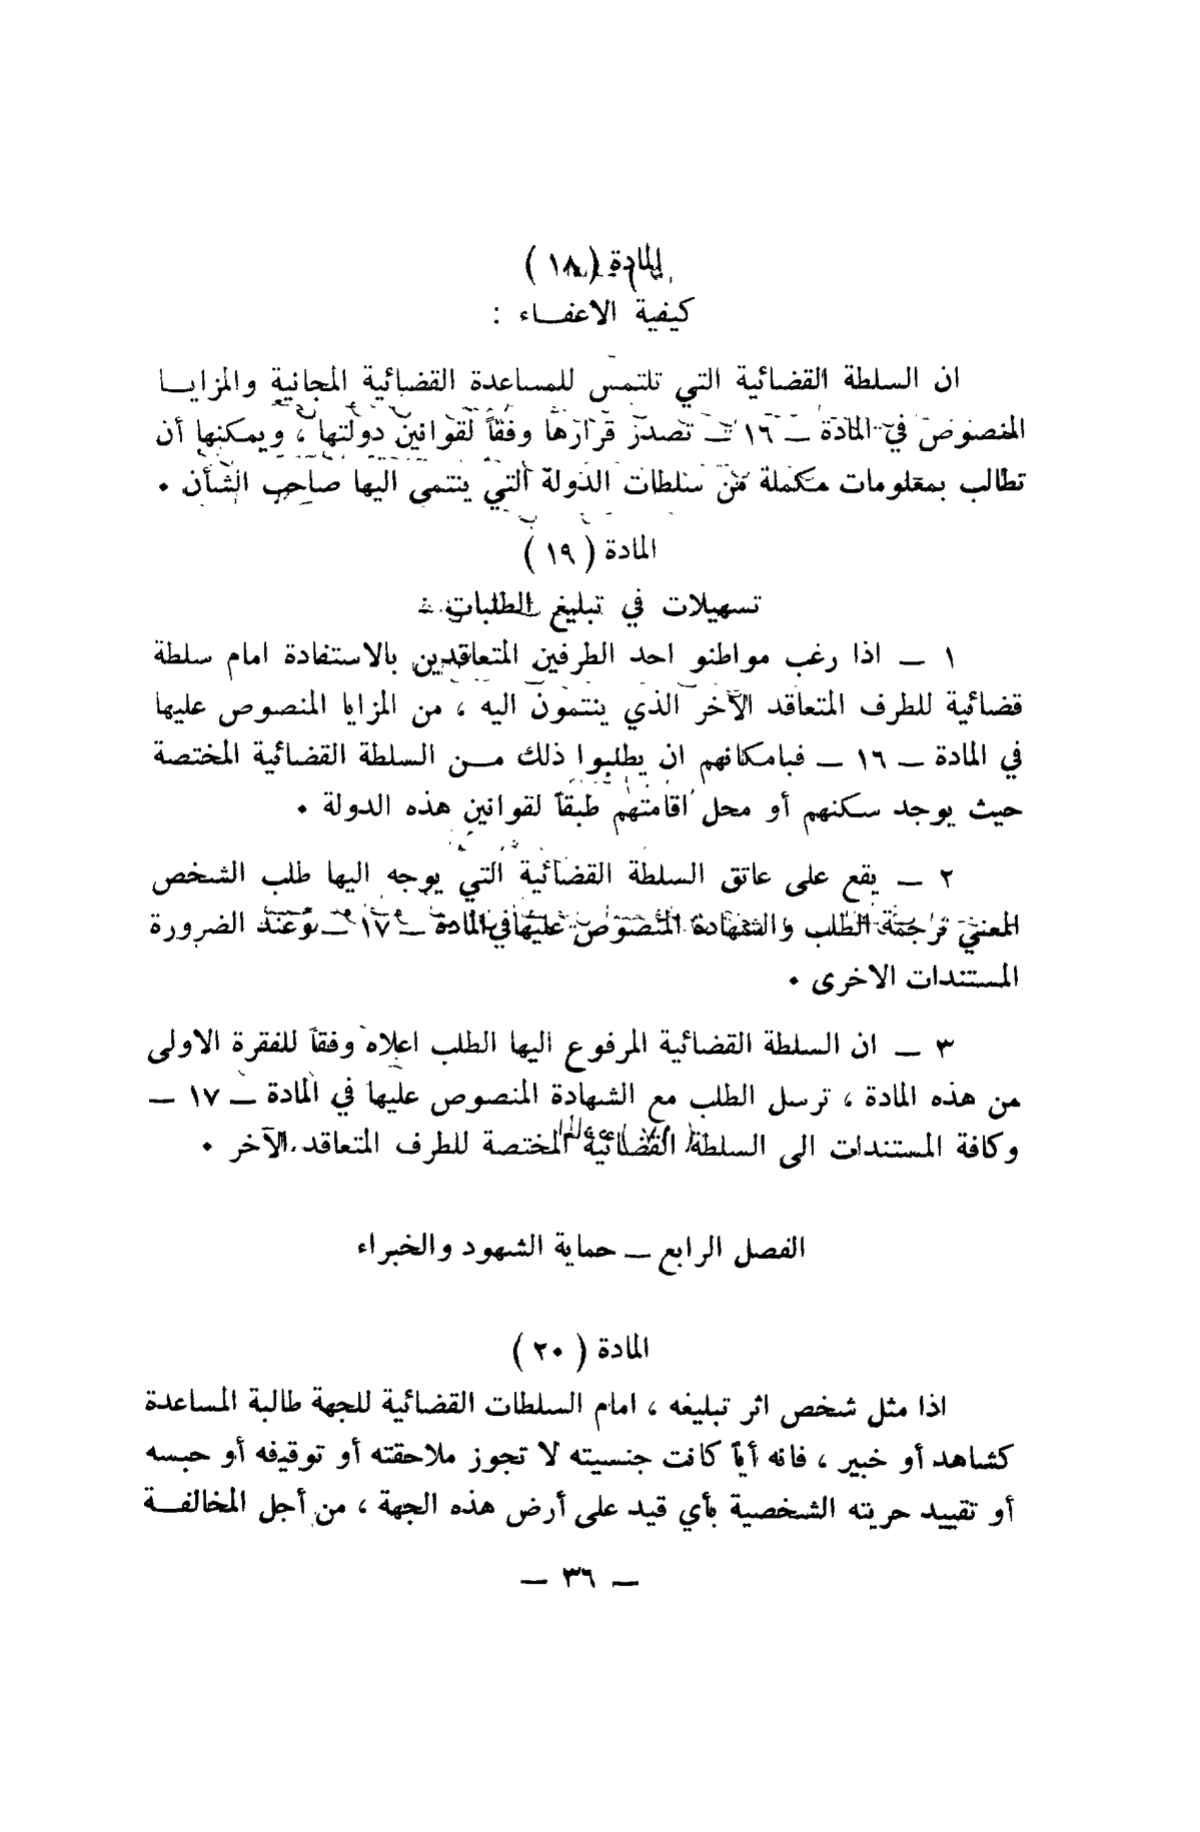 المادة ( ١٨ )
كيفية الاعفـاء :
ان السلطة القضائية التي تلتمس للمساعدة القضائية المجانية والمزايـا
المنصوص في المادة ـ ١٦ ـ تصدر قرارها وفقاً لقوانين دولتها ، ويمكنها أن
تطالب بمعلومات مكملة من سلطات الدولة التي ينتمي اليها صاحب الشأن .
المادة ( ١٩ )
تسهيلات في تبليغ الطلبات :
١ ـ اذا رغب مواطنو احد الطرفين المتعاقدين بالاستفادة امام سلطة
قضائية للطرف المتعاقد الآخر الذي ينتمون اليه ، من المزايا المنصوص عليها
في المادة ـ ١٦ ـ فبامكانهم ان يطلبوا ذلك مـن السلطة القضائية المختصة
حيث يوجد سكنهم أو محل اقامتهم طبقاً لقوانين هذه الدولة .
٢ ـ يقع على عاتق السلطة القضائية التي يوجه اليها طلب الشخص
المعني ترجمة الطلب والشهادة المنصوص عليها في المادة ـ ١٧ ـ وعند الضرورة
المستندات الاخرى .
٣ ـ ان السلطة القضائية المرفوع اليها الطلب اعلاه وفقاً للفقرة الاولى
من هذه المادة ، ترسل الطلب مع الشهادة المنصوص عليها في المادة ـ ١٧ ـ
وكافة المستندات الى السلطة القضائية المختصة للطرف المتعاقد الآخر .
الفصل الرابع ـ حماية الشهود والخبراء
المادة ( ٢٠ )
اذا مثل شخص اثر تبليغه ، امام السلطات القضائية للجهة طالبة المساعدة
كشاهد أو خبير ، فانه أياً كانت جنسيته لا تجوز ملاحقته أو توقيفه أو حبسه
أو تقييد حريته الشخصية بأي قيد على أرض هذه الجهة ، من أجل المخالفـة
ـ ٣٦ ـ